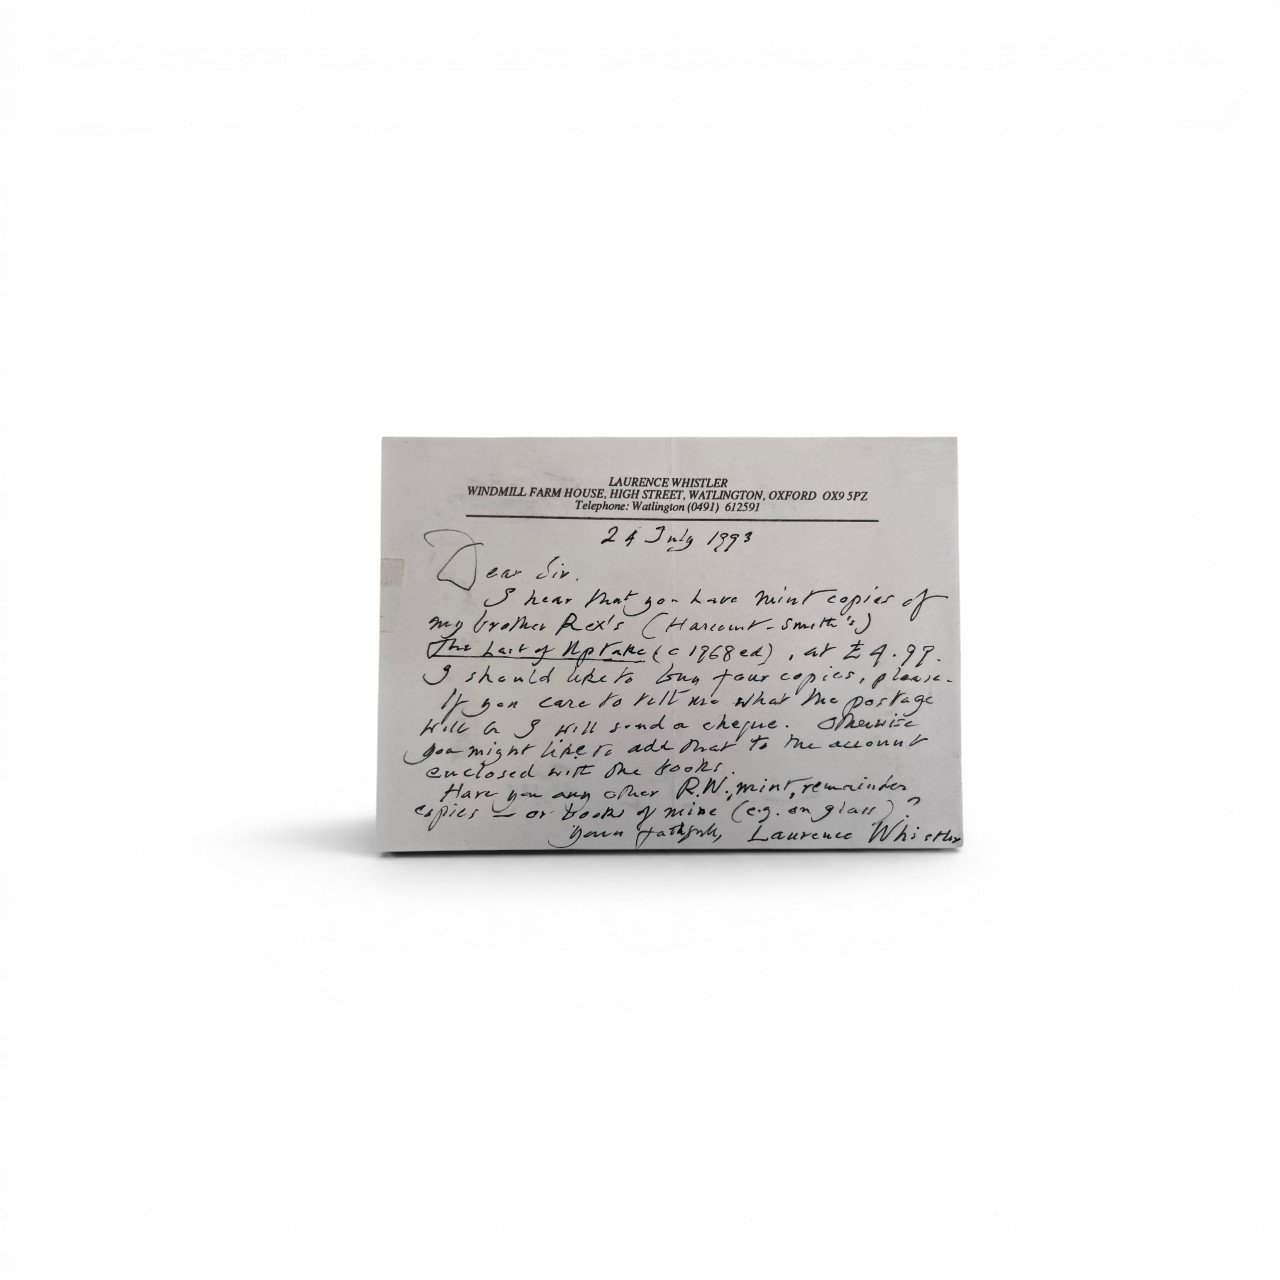 LAURENCE WHISTLER
WINDMILL FARM HOUSE, HIGH STREET, WATLINGTON, OXFORD OX9 5PZ
Telephone: Watlington (0491) 612591
24 July 1993
Dear Sir.
I hear that you have mint copies of
my brother Rex's (Harcourt-Smith's)
The Last of Uptake (c 1968 ed), at £4.99.
I should like to buy four copies, please.
If you care to tell me what the postage
will be I will send a cheque. Otherwise
you might like to add that to the account
enclosed with the books.
Have you any other R.W., mint, remainder
copies — or books of mine (e.g. on glass)?
Yours faithfully, Laurence Whistler